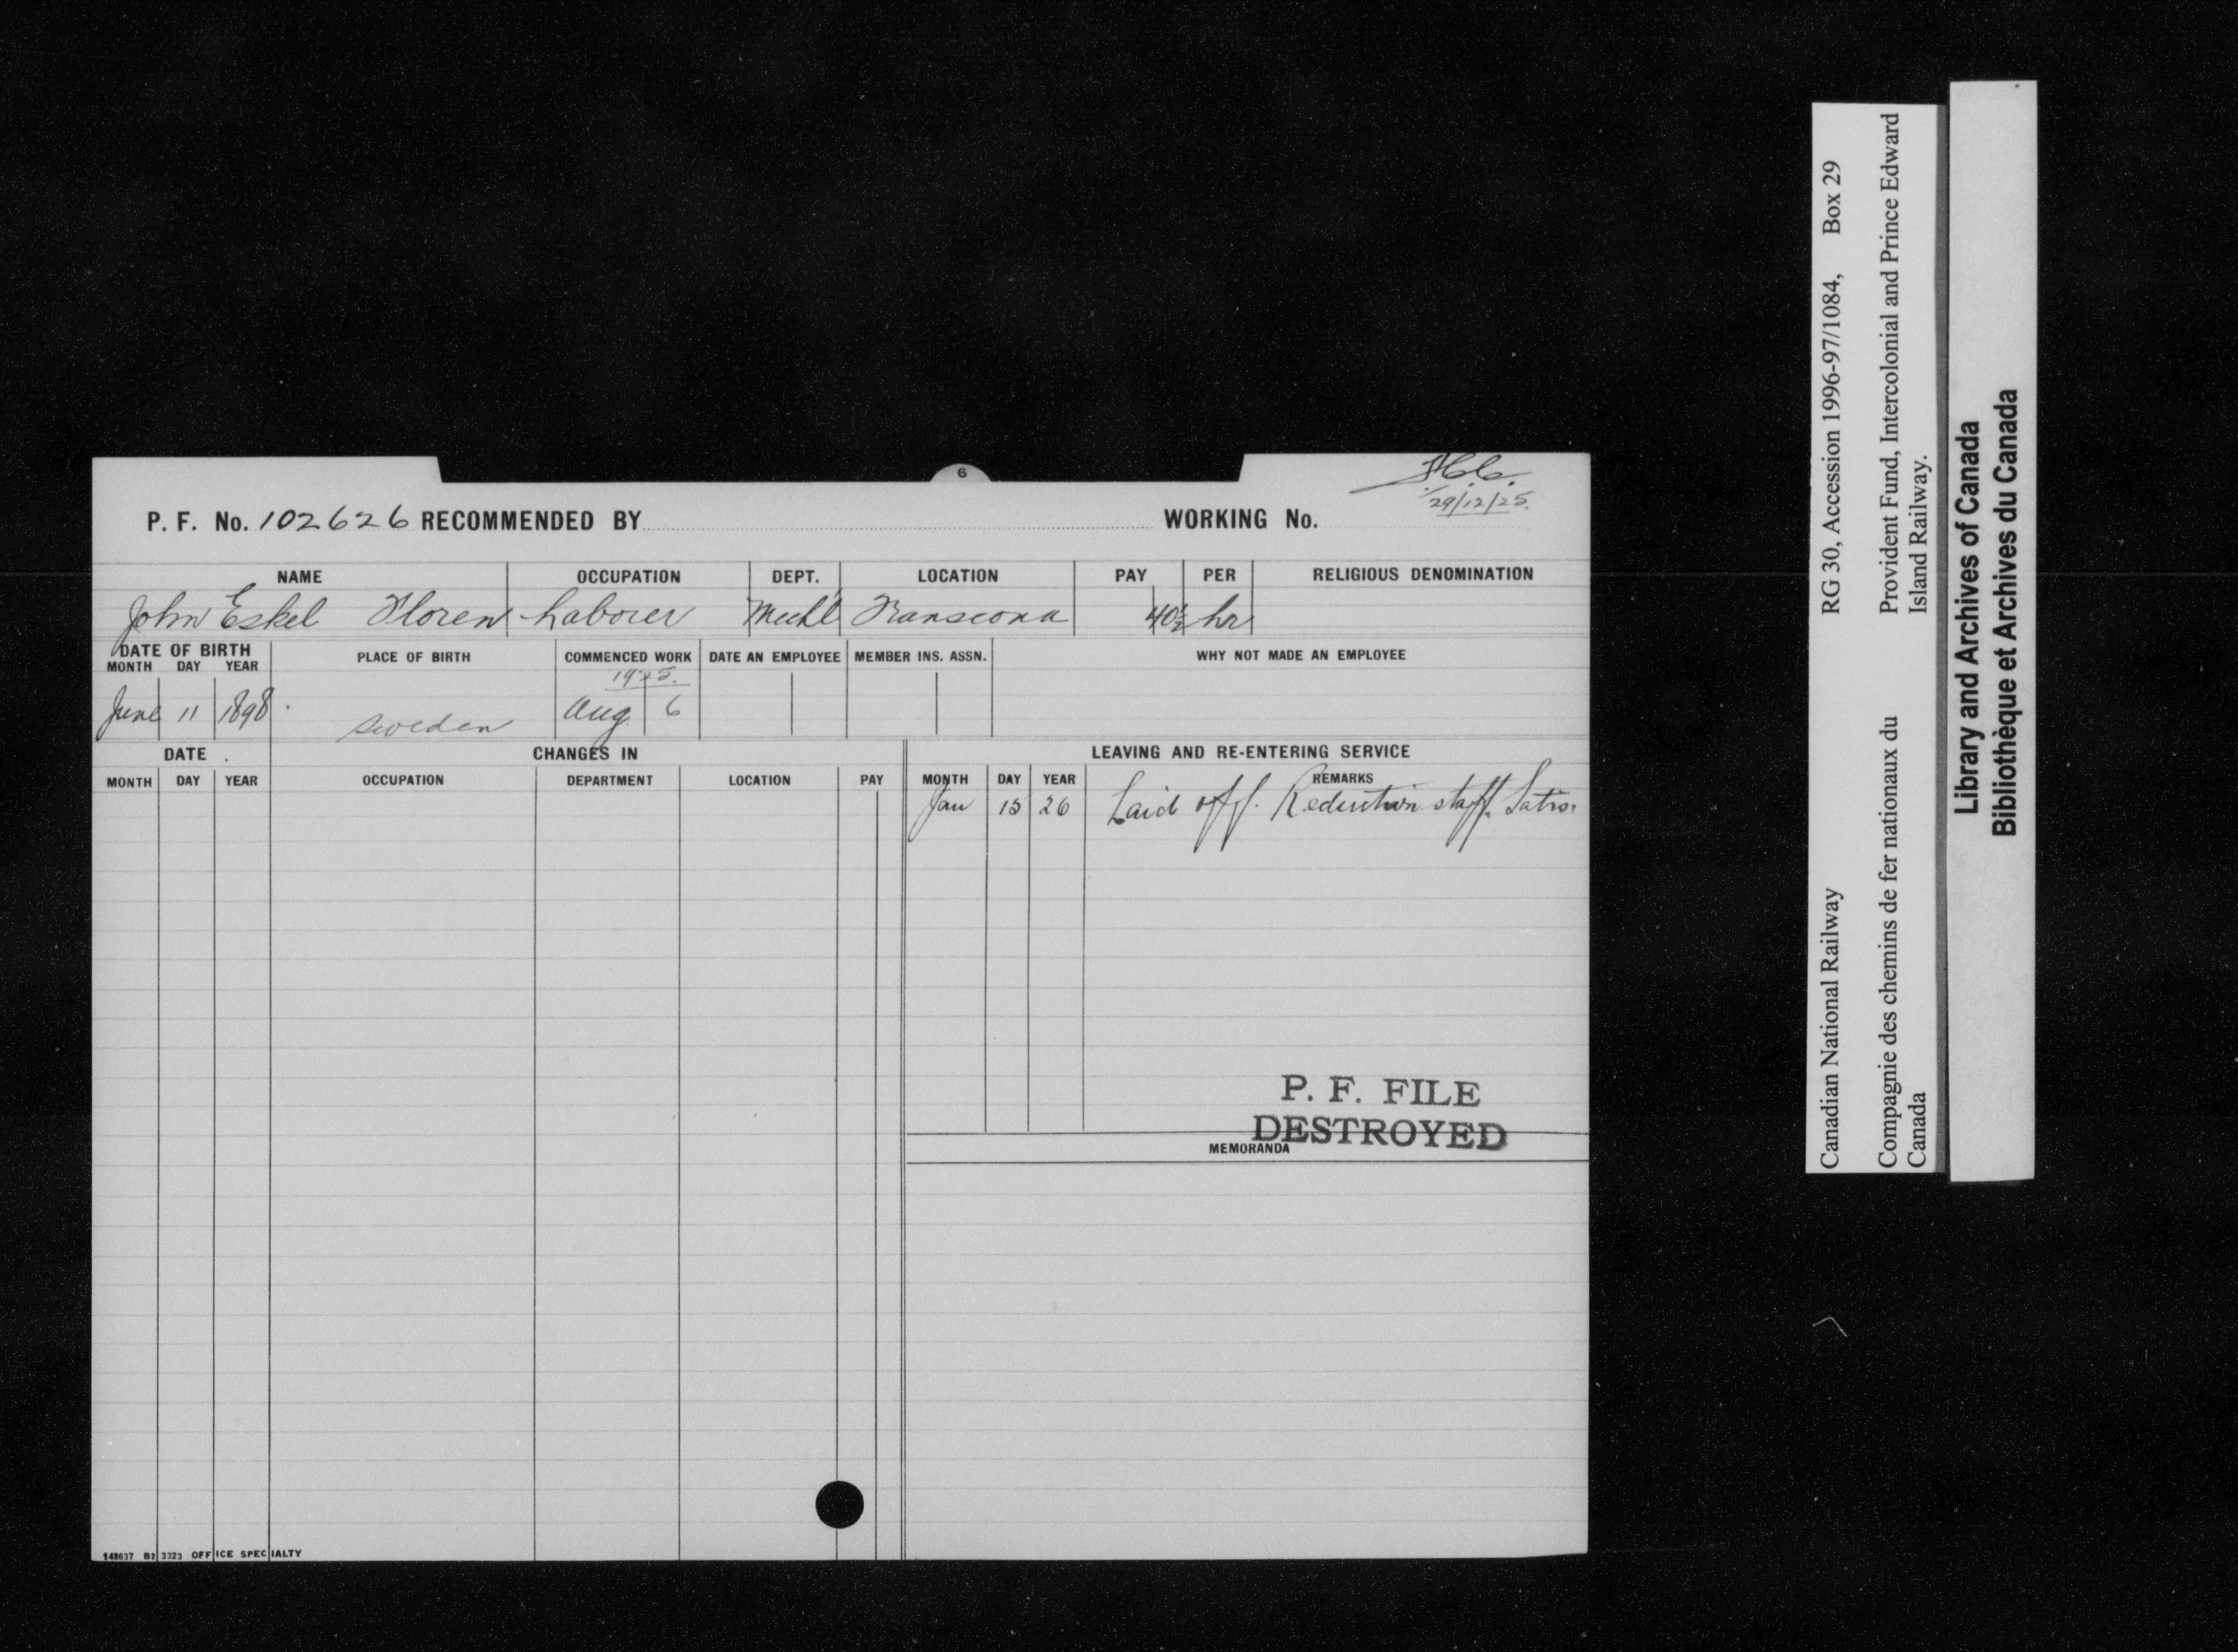 6
29/12/25.
P. F. No. 102626 RECOMMENDED BY WORKING No.
NAME OCCUPATION DEPT. LOCATION PAY PER RELIGIOUS DENOMINATION
John Eskel Floren Laborer Mechl Transcona 40½ hr
DATE OF BIRTH PLACE OF BIRTH COMMENCED WORK DATE AN EMPLOYEE MEMBER INS. ASSN. WHY NOT MADE AN EMPLOYEE
MONTH DAY YEAR
1925.
June 11 1898 Sweden Aug 6
DATE CHANGES IN LEAVING AND RE-ENTERING SERVICE
MONTH DAY YEAR OCCUPATION DEPARTMENT LOCATION PAY MONTH DAY YEAR REMARKS
Jan 15 26 Laid off. Reduction staff. Satis.
P. F. FILE
DESTROYED
MEMORANDA
148637 B2 3323 OFFICE SPECIALTY
Canadian National Railway RG 30, Accession 1996-97/1084, Box 29
Compagnie des chemins de fer nationaux du Canada
Provident Fund, Intercolonial and Prince Edward Island Railway.
Library and Archives of Canada
Bibliothèque et Archives du Canada